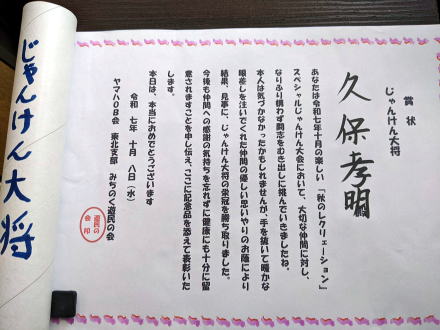 賞状
じゃんけん大将
久保孝明
あなたは令和七年十月の楽しい「秋のレクリェーション」
スペシャルじゃんけん大会において、大切な仲間に対し、
なりふり構わず闘志をむき出しに挑んでいきましたね。
本人は気づかなかったかもしれませんが、手を抜いて暖かな
眼差しを注いでくれた仲間の優しい思いやりのお蔭により
結果、見事に、じゃんけん大将の栄冠を勝ち取りました。
今後も仲間への感謝の気持ちを忘れずに健康にも十分に留
意されますことを申し伝え、ここに記念品を添えて表彰いた
します。
本日は、本当におめでとうございます
令和 七年 十月 八日（水）
ヤマハOB会 東北支部 みちのく遊民の会
遊民の
会印
じゃんけん大将